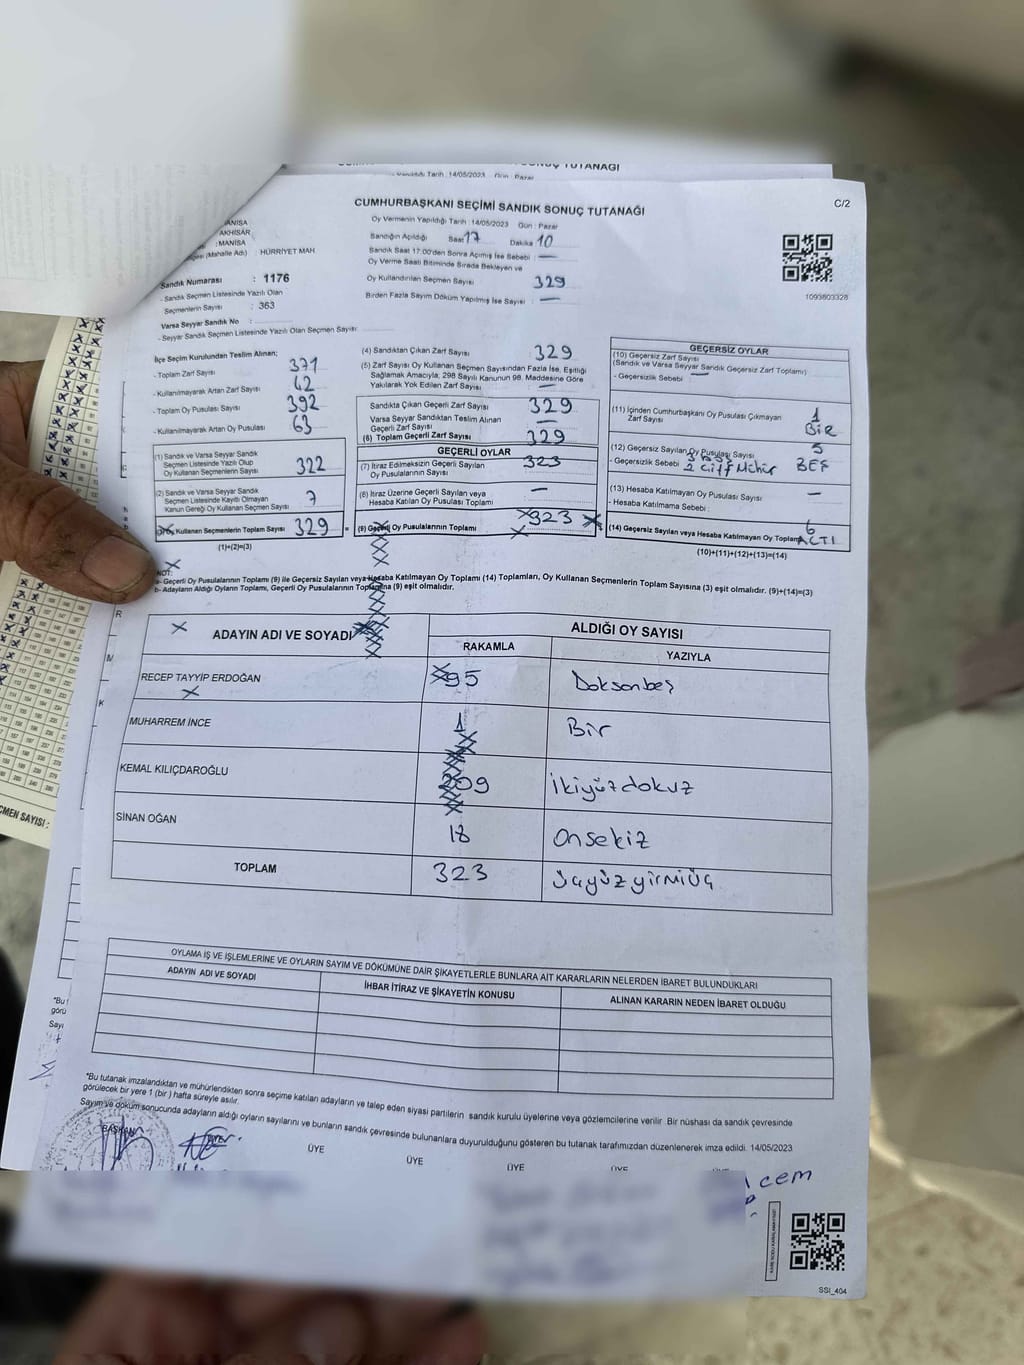 NUÇ TUTANAĞI
Tarih : 14/05/2023 Gün : Pazar
C/2
CUMHURBAŞKANI SEÇİMİ SANDIK SONUÇ TUTANAĞI
Oy Vermenin Yapıldığı Tarih : 14/05/2023 Gün : Pazar
ANİSA
AKHİSAR
: MANİSA
(Mahalle Adı) : HÜRRİYET MAH
Sandığın Açıldığı Saat 17 Dakika 10
Sandık Saat 17:00'den Sonra Açmış İse Sebebi : —
Oy Verme Saati Bitiminde Sırada Bekleyen ve
Oy Kullandırılan Seçmen Sayısı 329
Birden Fazla Sayım Döküm Yapılmış İse Sayısı : —
1093803328
Sandık Numarası : 1176
- Sandık Seçmen Listesinde Yazılı Olan
Seçmenlerin Sayısı : 363
Varsa Seyyar Sandık No :
- Seyyar Sandık Seçmen Listesinde Yazılı Olan Seçmen Sayısı
İlçe Seçim Kurulundan Teslim Alınan;
- Toplam Zarf Sayısı 371
- Kullanılmayarak Artan Zarf Sayısı 42
- Toplam Oy Pusulası Sayısı 392
- Kullanılmayarak Artan Oy Pusulası 63
(1) Sandık ve Varsa Seyyar Sandık
Seçmen Listesinde Yazılı Olup
Oy Kullanan Seçmenlerin Sayısı 322
(2) Sandık ve Varsa Seyyar Sandık
Seçmen Listesinde Kayıtlı Olmayan
Kanun Gereği Oy Kullanan Seçmen Sayısı 7
(3) Oy Kullanan Seçmenlerin Toplam Sayısı 329 =
(1)+(2)=(3)
(4) Sandıktan Çıkan Zarf Sayısı : 329
(5) Zarf Sayısı Oy Kullanan Seçmen Sayısından Fazla İse, Eşitliği
Sağlamak Amacıyla; 298 Sayılı Kanunun 98. Maddesine Göre
Yakılarak Yok Edilen Zarf Sayısı —
Sandıkta Çıkan Geçerli Zarf Sayısı 329
Varsa Seyyar Sandıktan Teslim Alınan
Geçerli Zarf Sayısı —
(6) Toplam Geçerli Zarf Sayısı 329
GEÇERLİ OYLAR
(7) İtiraz Edilmeksizin Geçerli Sayılan
Oy Pusulalarının Sayısı 323
(8) İtiraz Üzerine Geçerli Sayılan veya
Hesaba Katılan Oy Pusulası Toplamı —
(9) Geçerli Oy Pusulalarının Toplamı 323
GEÇERSİZ OYLAR
(10) Geçersiz Zarf Sayısı
(Sandık ve Varsa Seyyar Sandık Geçersiz Zarf Toplamı)
- Geçersizlik Sebebi : —
(11) İçinden Cumhurbaşkanı Oy Pusulası Çıkmayan
Zarf Sayısı 1
BİR
(12) Geçersiz Sayılan Oy Pusulası Sayısı 5
- Geçersizlik Sebebi 2 Çift Mühür BEŞ
(13) Hesaba Katılmayan Oy Pusulası Sayısı —
- Hesaba Katılmama Sebebi :
(14) Geçersiz Sayılan veya Hesaba Katılmayan Oy Toplamı 6
ALTI
(10)+(11)+(12)+(13)=(14)
NOT:
a- Geçerli Oy Pusulalarının Toplamı (9) ile Geçersiz Sayılan veya Hesaba Katılmayan Oy Toplamı (14) Toplamları, Oy Kullanan Seçmenlerin Toplam Sayısına (3) eşit olmalıdır. (9)+(14)=(3)
b- Adayların Aldığı Oyların Toplamı, Geçerli Oy Pusulalarının Toplamına (9) eşit olmalıdır.
ADAYIN ADI VE SOYADI
ALDIĞI OY SAYISI
RAKAMLA YAZIYLA
RECEP TAYYİP ERDOĞAN 95 Doksanbeş
MUHARREM İNCE 1 Bir
KEMAL KILIÇDAROĞLU 209 İkiyüzdokuz
SİNAN OĞAN 18 Onsekiz
TOPLAM 323 üçyüzyirmiüç
OYLAMA İŞ VE İŞLEMLERİNE VE OYLARIN SAYIM VE DÖKÜMÜNE DAİR ŞİKAYETLERLE BUNLARA AİT KARARLARIN NELERDEN İBARET BULUNDUKLARI
ADAYIN ADI VE SOYADI
İHBAR İTİRAZ VE ŞİKAYETİN KONUSU
ALINAN KARARIN NEDEN İBARET OLDUĞU
*Bu tutanak imzalandıktan ve mühürlendikten sonra seçime katılan adayların ve talep eden siyasi partilerin sandık kurulu üyelerine veya gözlemcilerine verilir. Bir nüshası da sandık çevresinde
görülecek bir yere 1 (bir ) hafta süreyle asılır.
Sayım ve döküm sonucunda adayların aldığı oyların sayılarını ve bunların sandık çevresinde bulunanlara duyurulduğunu gösteren bu tutanak tarafımızdan düzenlenerek imza edildi. 14/05/2023
BAŞKAN
ÜYE
ÜYE
ÜYE
ÜYE
cem
SSI_404
ÇMEN SAYISI :